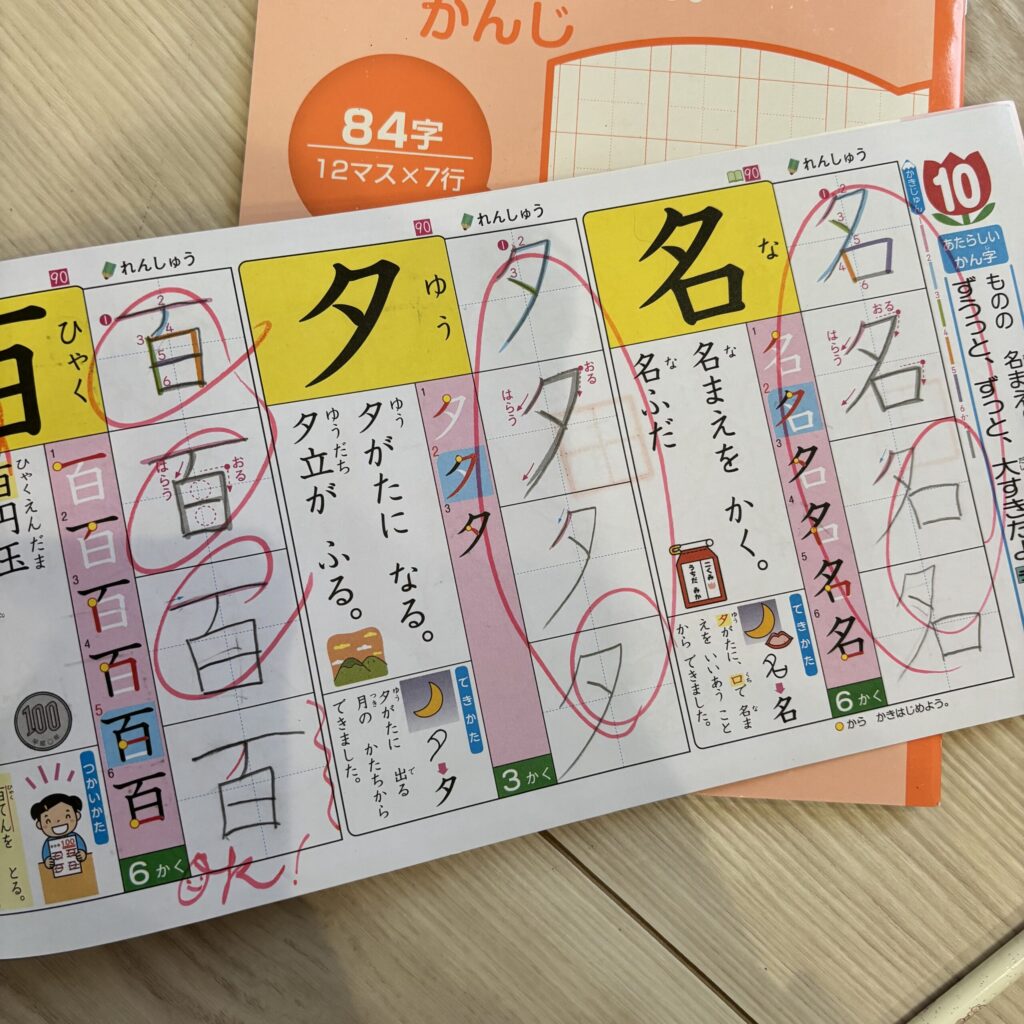 かんじ
84字
12マス×7行
10
かきじゅん
あたらしい
かん字
ものの 名まえ
ずうっと、ずっと、大すきだよ
90
れんしゅう
名
な
名
名
名
名
おる
はらう
名まえを かく。
な
名ふだ
な
こくみん
うちだ みか
できかた
夕がたに、口で 名ま
えを いいあう こと
から できました。
名
6かく
から かきはじめよう。
90
れんしゅう
夕
ゆう
夕
夕
夕
夕
おる
はらう
夕がたに なる。
ゆう
夕立が ふる。
ゆうだち
できかた
夕がたに 出る
月の かたちから
できました。
夕
3かく
90
れんしゅう
百
ひゃく
百
百
百
百
おる
はらう
百円玉
ひゃくえんだま
100
つかいかた
百てんを とる。
6かく
OK!